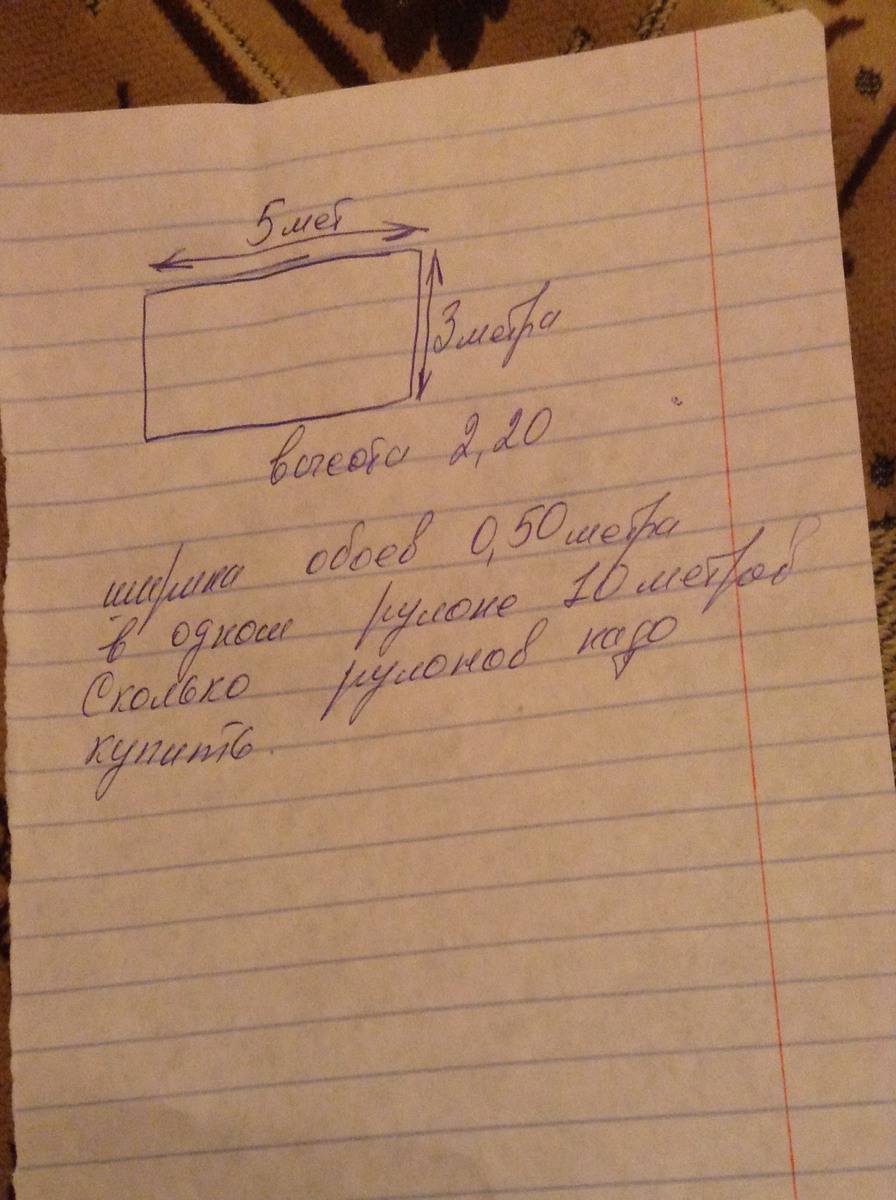 5 мет
3 метра
высота 2,20
ширина обоев 0,50 метра
в одном рулоне 10 метров
Сколько рулонов надо
купить.